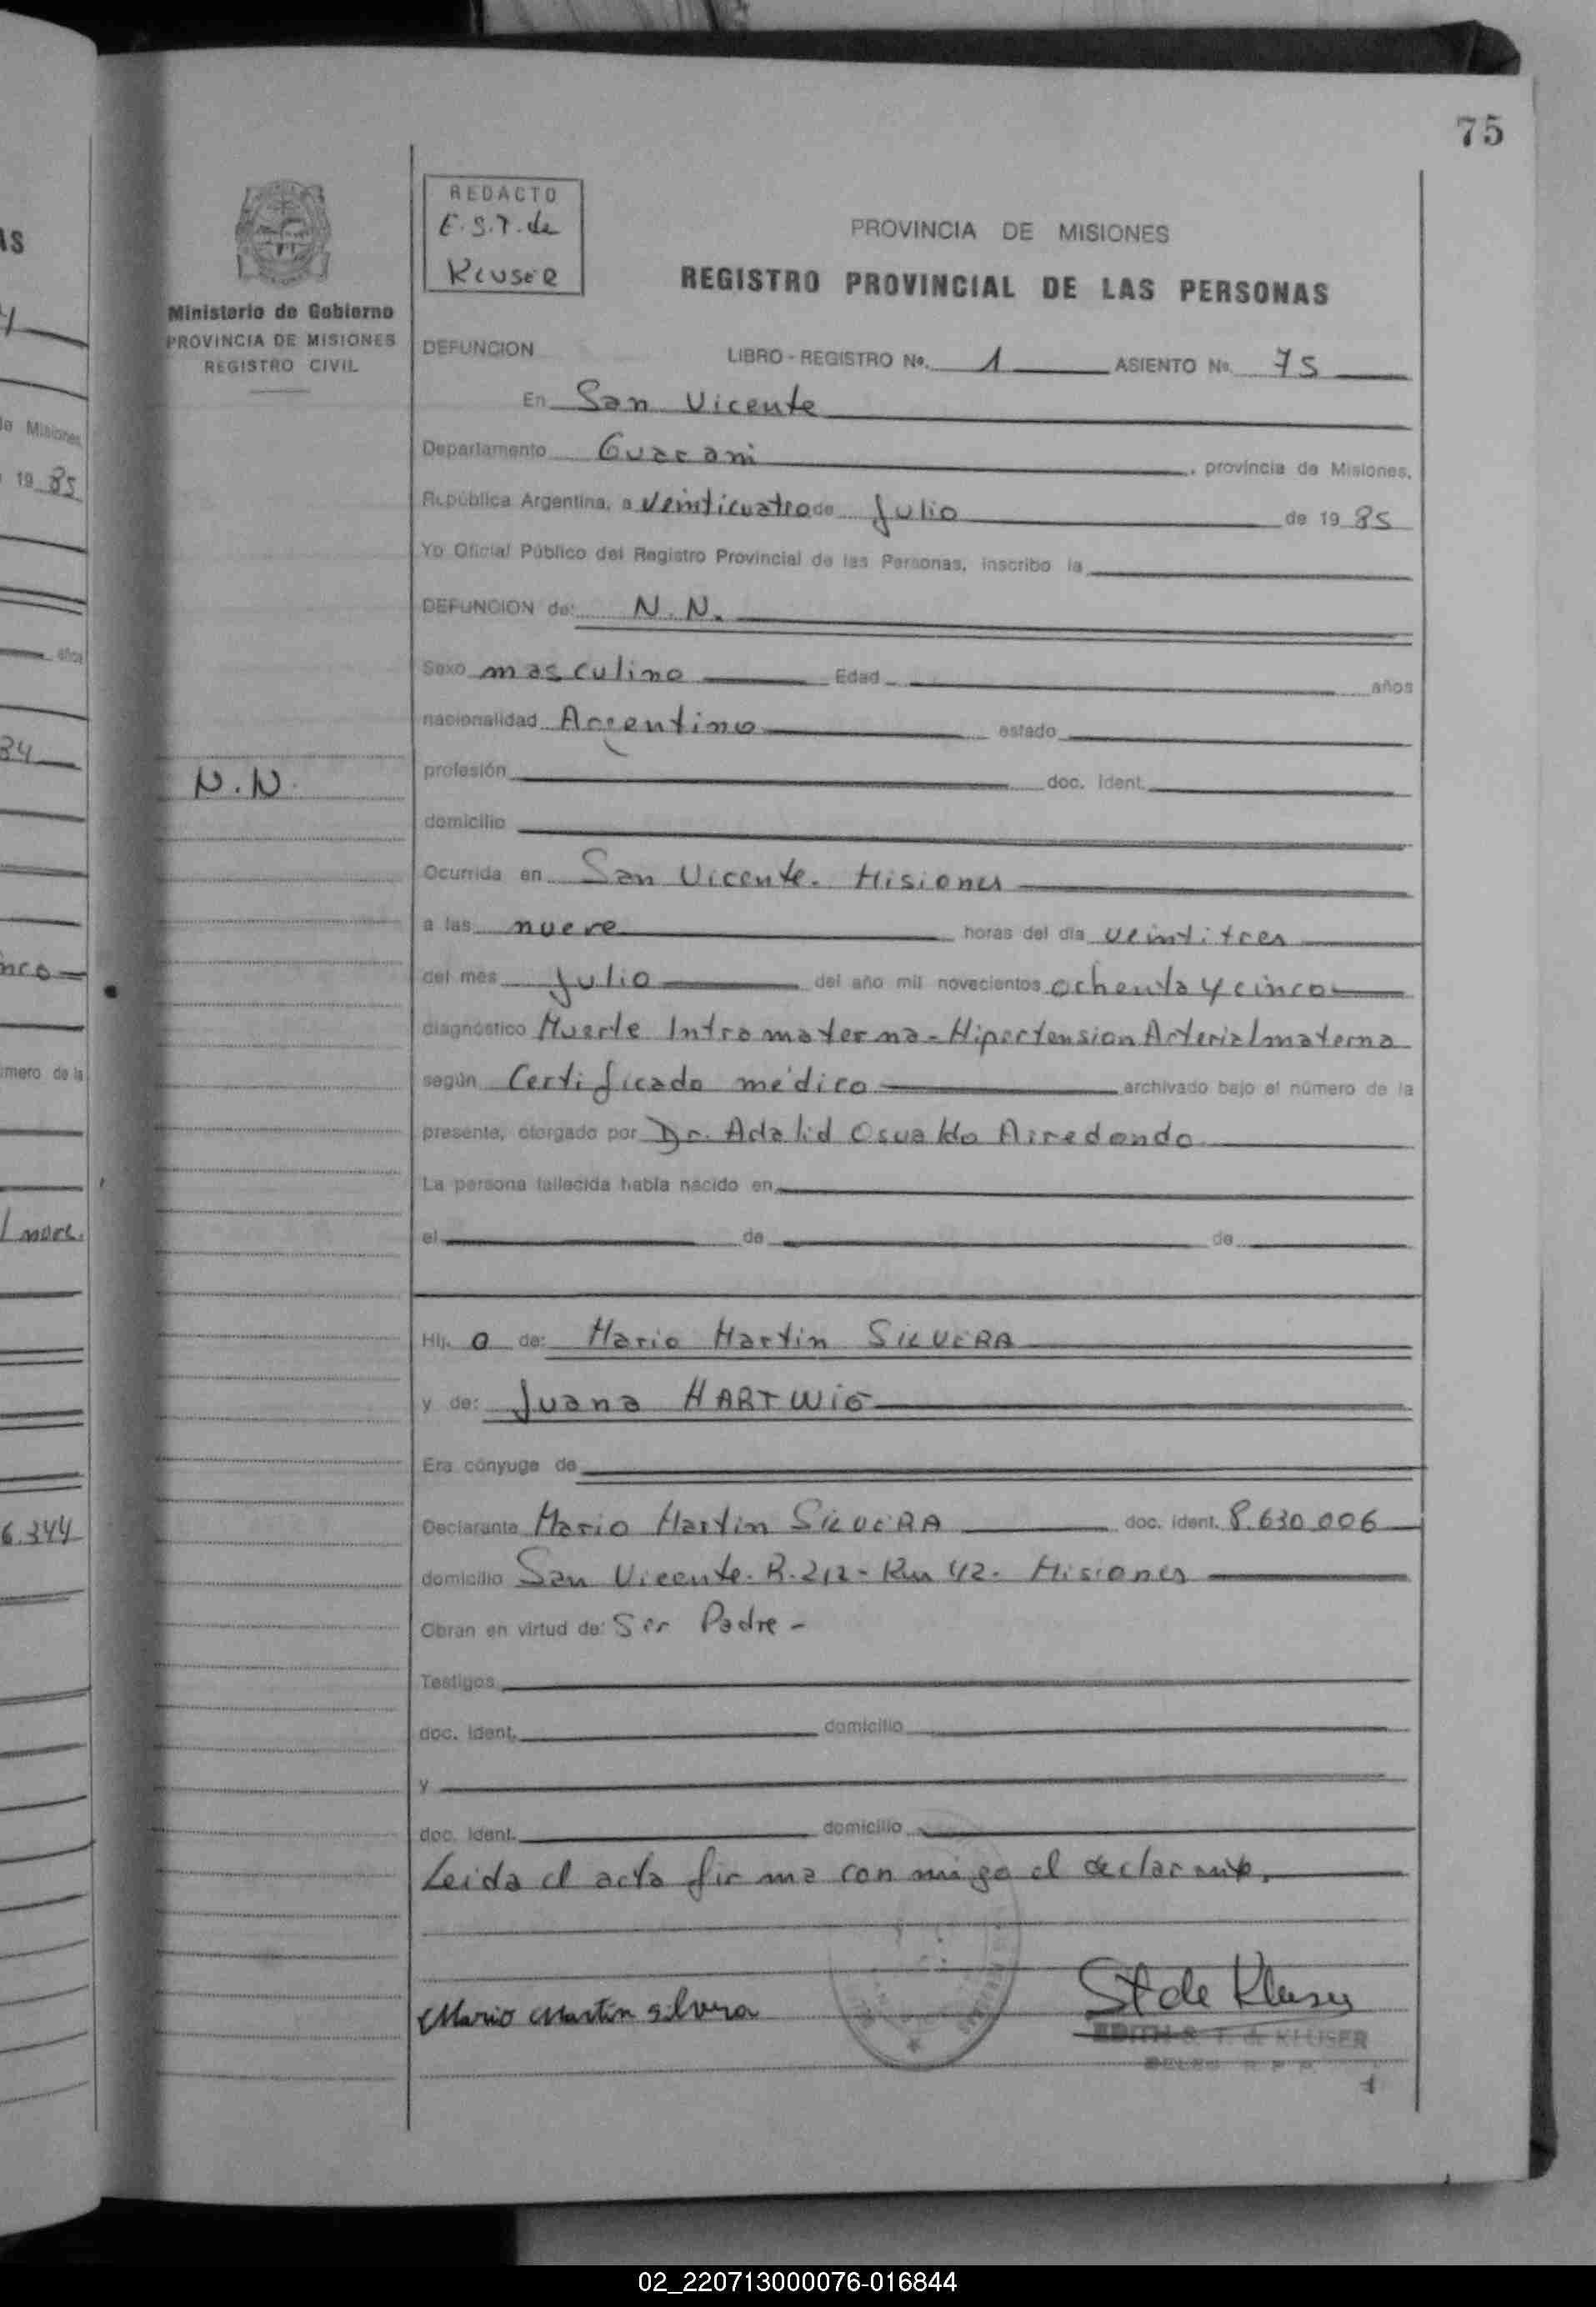 75
REDACTO
E.S.T. de
KLUSER
PROVINCIA DE MISIONES
REGISTRO PROVINCIAL DE LAS PERSONAS
Ministerio de Gobierno
PROVINCIA DE MISIONES
REGISTRO CIVIL
DEFUNCION LIBRO - REGISTRO No. 1 ASIENTO No. 75
En San Vicente
Departamento Guarani, provincia de Misiones,
República Argentina, a veinticuatro de Julio de 1985
Yo Oficial Público del Registro Provincial de las Personas, inscribo la
DEFUNCION de: N. N.
Sexo masculino Edad años
nacionalidad Argentino estado
N.N.
profesión doc. ident.
domicilio
Ocurrida en San Vicente. Misiones
a las nueve horas del día veintitres
del mes Julio del año mil novecientos ochenta y cinco
diagnóstico Muerte Intromaterna - Hipertension Arterial materna
según Certificado médico archivado bajo el número de la
presente, otorgado por Dr. Adalid Osvaldo Airedondo
La persona fallecida había nacido en
el de de
Hij. o de: Mario Martin SILVERA
y de: Juana HARTWIG
Era cónyuge de
Declarante Mario Martin SILVERA doc. ident. 8.630.006
domicilio San Vicente. R. 212 - Km 42. Misiones
Obran en virtud de: Ser Padre -
Testigos
doc. ident. domicilio
y
doc. ident. domicilio
Leida el acta firma con migo el declarante.
Mario Martin Silvera
St de Kluser
EDITH S. T. de KLUSER
AS
de Misiones
1985
años
84
nco
número de la
6.344
02_220713000076-016844